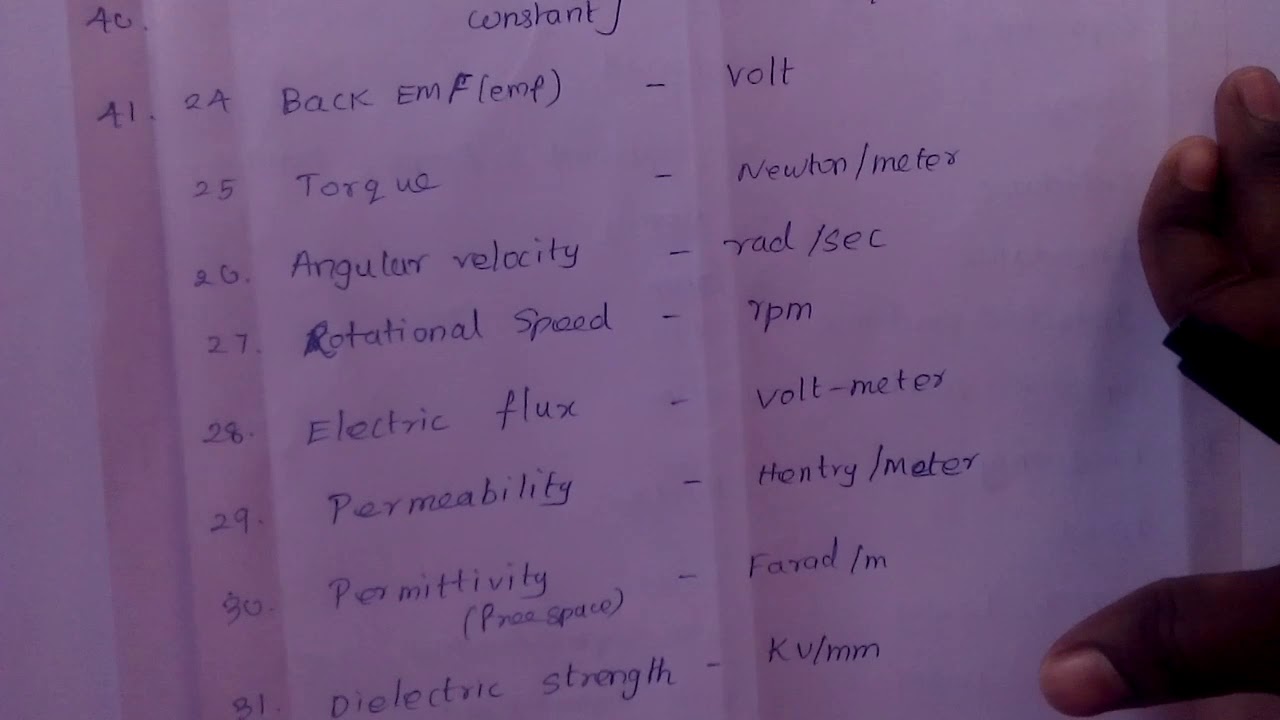 40. constant}
41. 24 Back EMF (emf) - Volt
25 Torque - Newton/meter
26. Angular velocity - rad/sec
27. Rotational Speed - rpm
28. Electric flux - Volt-meter
29. Permeability - Hentry/meter
30. Permittivity - Farad/m
(Free space)
31. Dielectric strength - KV/mm